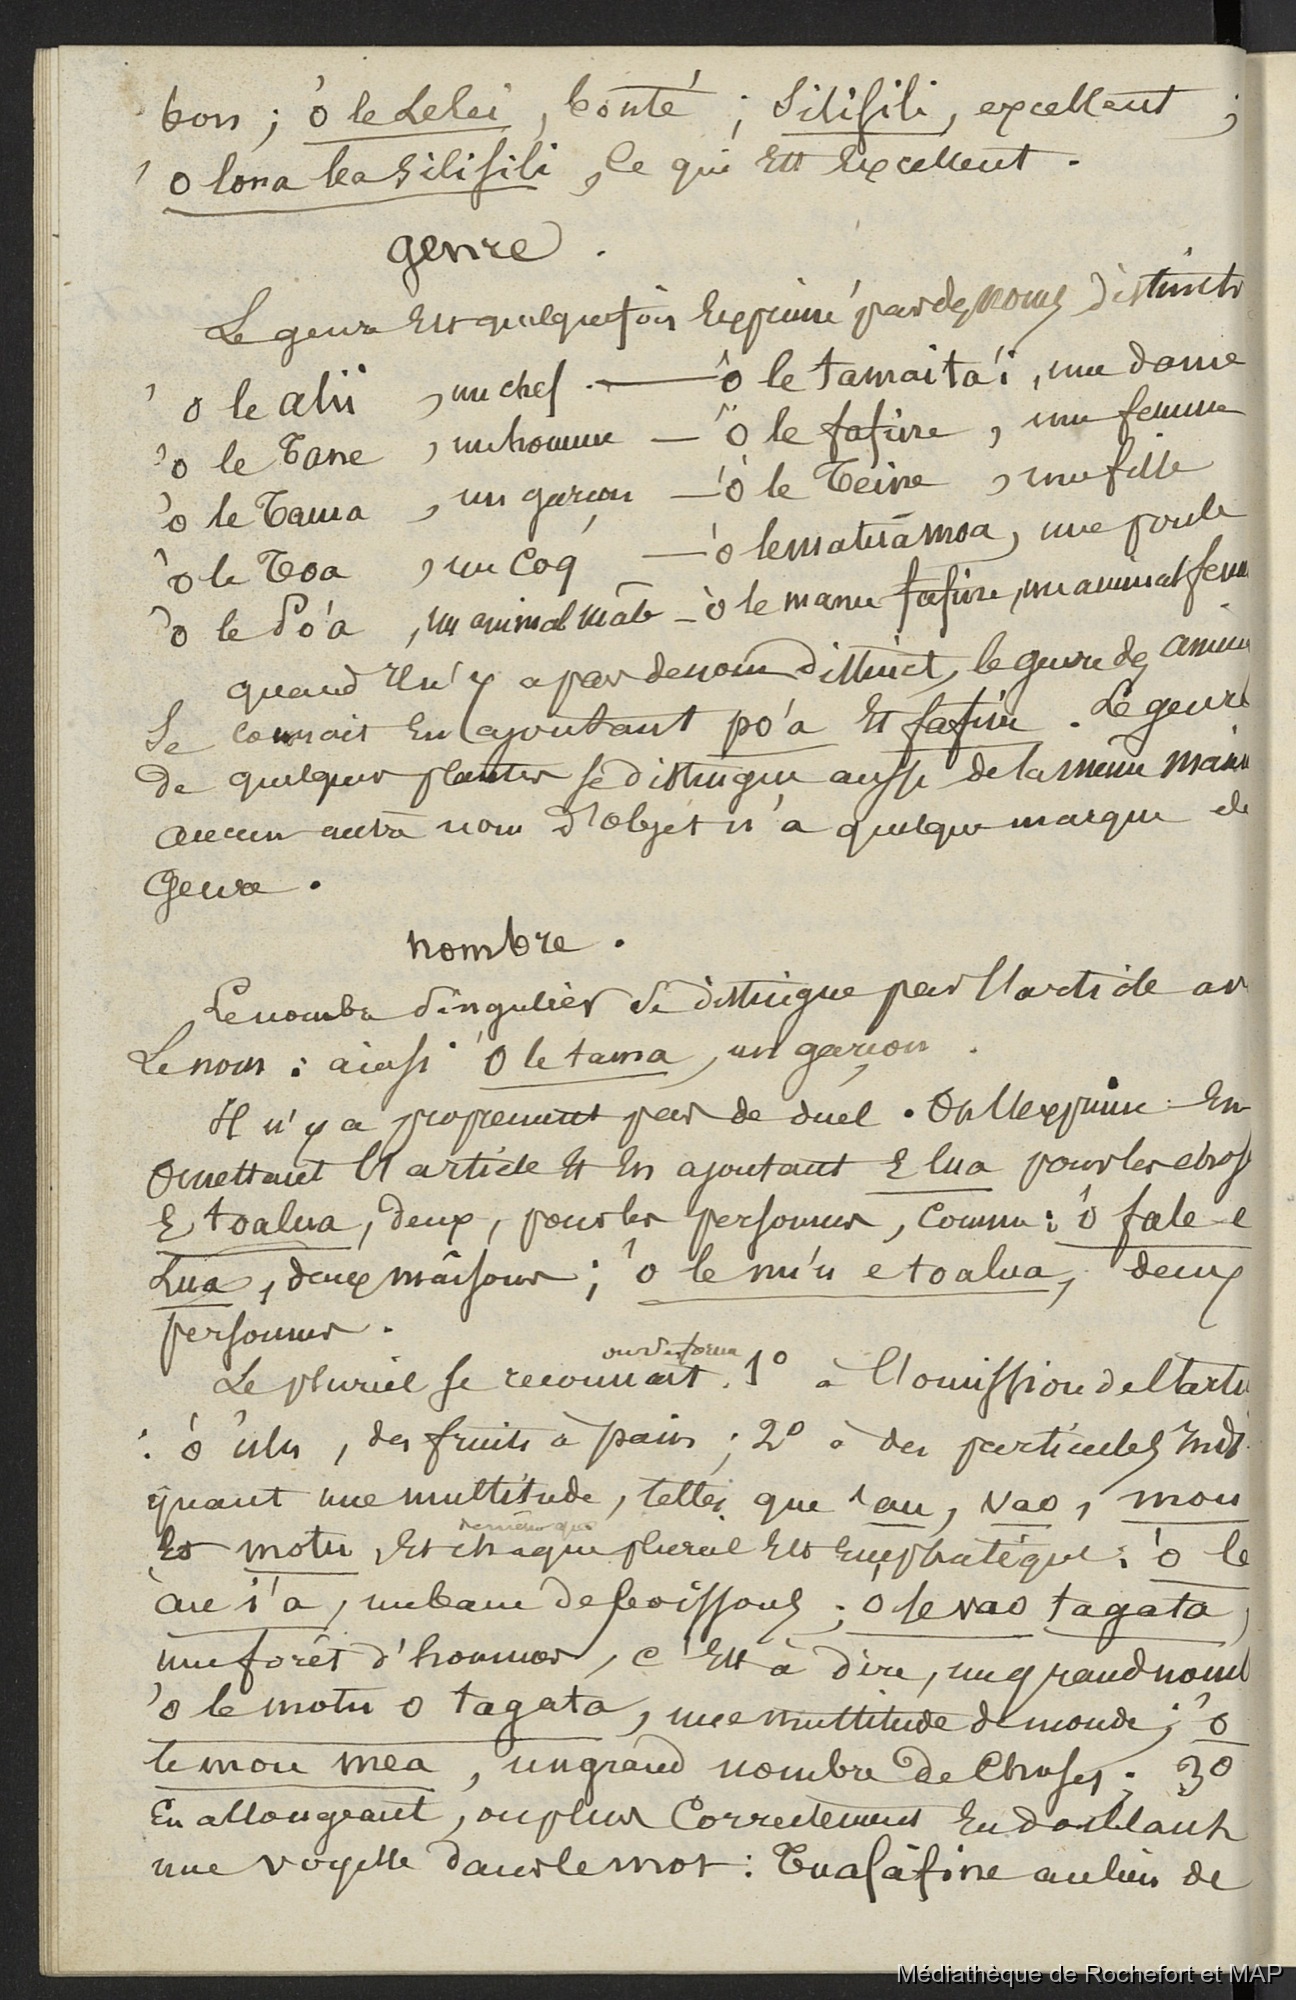 bon ; ô le Lelei , bonté ; Silisili , excellent ;
'o lona lea silisili , Ce qui est excellent .
genre .
Le genre est quelquefois exprimé par des noms distincts
'o le alii , un chef . — 'o le tamaita'i , une dame
'o le Tane , un homme — 'o le fafine , une femme
'o le Tama , un garçon — 'o le Teine , une fille
'o le Toa , un coq — 'o le matuā moa , une poule
'o le Po'a , un animal mâle — 'o le manu fafine , un animal fem
quand il n'y a pas de nom distinct , le genre des anim
se connait en ajoutant po'a et fafine . Le genre
de quelques plantes se distingue aussi de la même mani
aucun autre nom d'objet n'a quelque marque de
Genre .
nombre .
Le nombre singulier se distingue par l'article av
Le nom : ainsi 'O le tama , un garçon .
Il n'y a proprement pas de duel . On l'exprime en
Omettant l'article et en ajoutant E lua pour les chos
E toalua , deux , pour les personnes , comme : 'o fale e
Lua , deux maisons ; 'o le nu'u e toalua , deux
personnes .
ou se forme
Le pluriel se reconnait . 1º à l'omission de l'arti
: 'o 'ulu , des fruits à pain ; 2º à des particules indi
quant une multitude , telles que 'au , vao , mou
de même que
Et motu , Et chaque pluriel est emphatique : 'o le
'au i'a , un banc de poissons ; 'o le vao tagata ,
une forêt d'hommes , c'est à dire , un grand nomb
'o le motu o tagata , une multitude de monde ; 'o
le mou mea , un grand nombre de Choses ; 3º
En allongeant , ou plus Correctement en doublant
une voyelle dans le mot : Tuafāfine au lieu de
Médiathèque de Rochefort et MAP